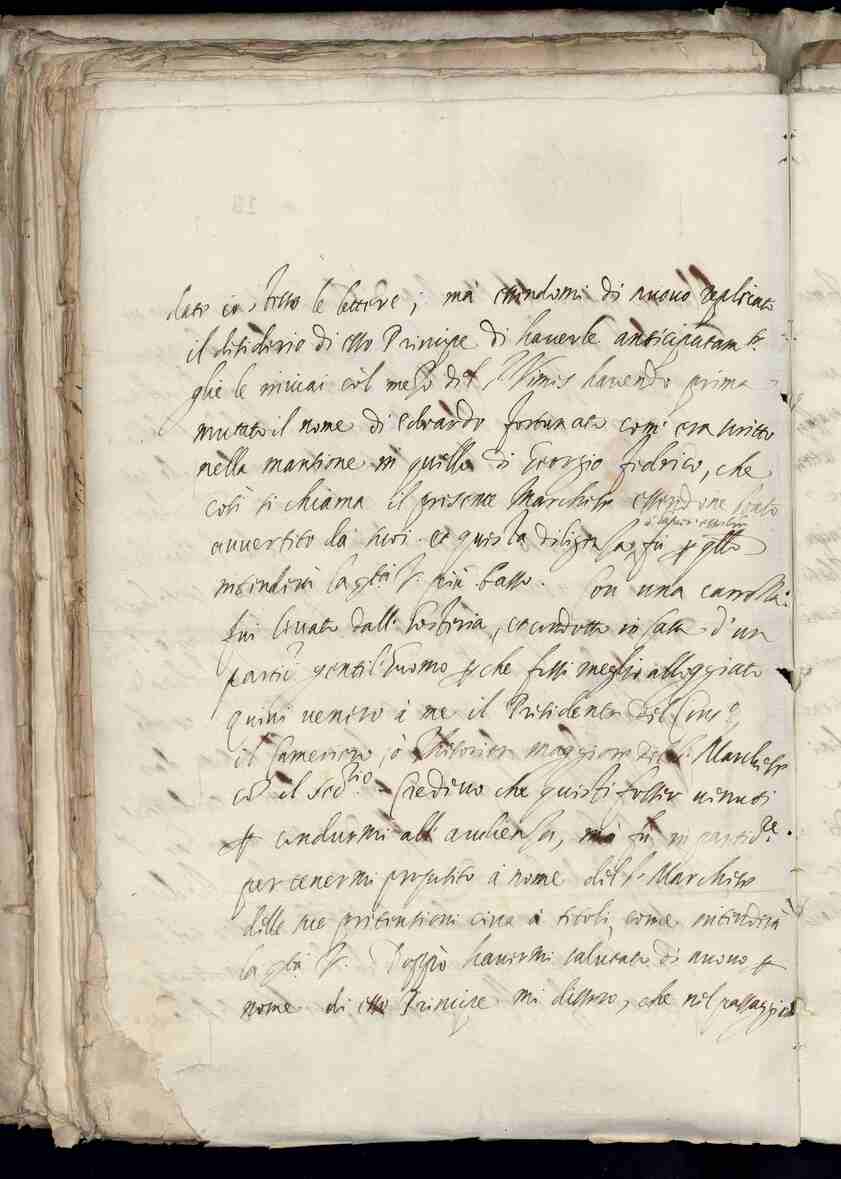 dato io stesso le lettere; mà essendomi di nuouo replicato
il desiderio di esso Principe di hauerle anticipatam.te
glie le inuiai col mezo del Wimis hauendo prima
mutato il nome di Edoardo fortunato com' era scritto
nella mansione in quello di Georgio Federico, che
così si chiama il presente Marchese essendone stato
auuertito da suoi. et questa diligenza fù per quello
intenderà la S.tà V. più basso. Con una carrozza
fui leuato dall' hosteria, et condotto in casa d'un
partic.r gentil'huomo perche fossi meglio alloggiato
quiui uenero à me il Presidente del Cons.o,
il Cameriero, ò Maggiore del S.r Marchese
co' el Seg.rio. Credeuo che questi fosser uenuti
per condurmi all' audienza, mà fù in partic.re
per tenermi proposito à nome del S.r Marchese
delle sue pretensioni circa à titoli, come intenderà
la S.tà V. Doppò hauermi salutato di nuouo per
nome di esso Principe mi dissero, che nel passaggio